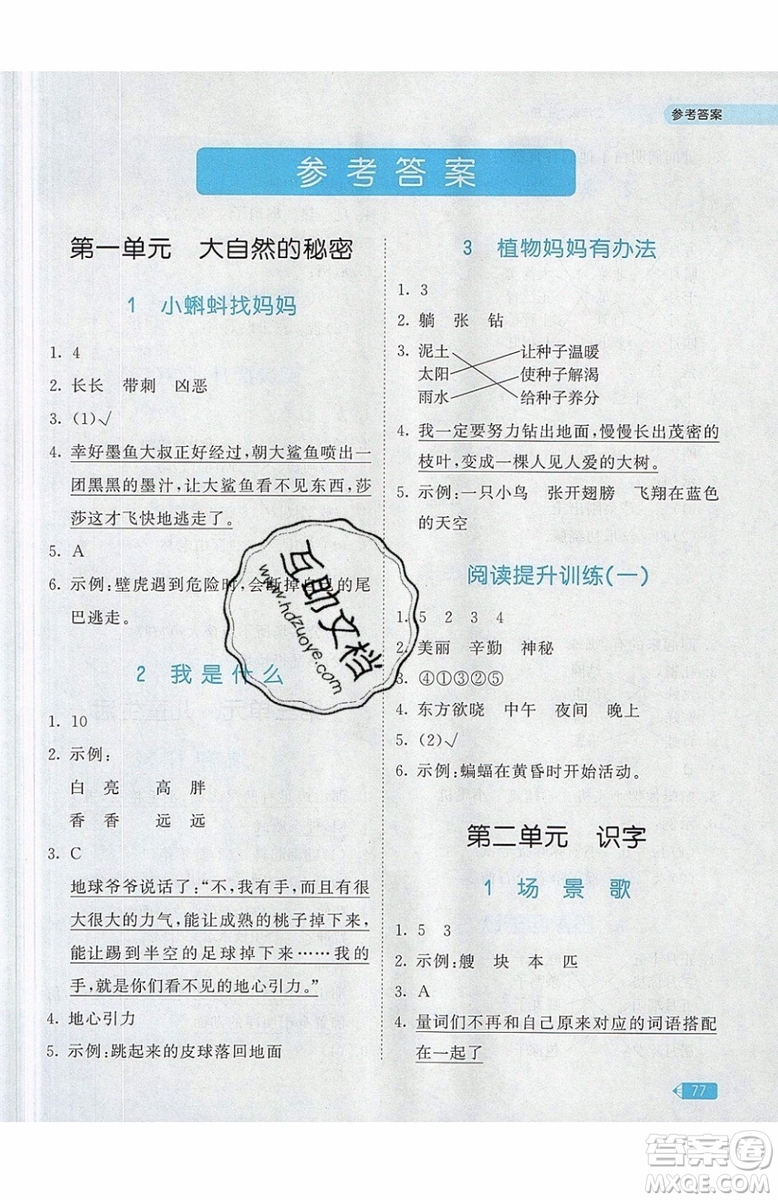 参考答案
参考答案
第一单元 大自然的秘密
1 小蝌蚪找妈妈
1. 4
2. 长长 带刺 凶恶
3. (1)√
4. 幸好墨鱼大叔正好经过,朝大鲨鱼吐出一
团黑黑的墨汁,让大鲨鱼看不见东西,莎
莎这才飞快地逃走了。
5. A
6. 示例:壁虎遇到危险时,会断掉自己的尾
巴逃走。
2 我是什么
1. 10
2. 示例:
白 亮 高 胖
香 香 远 远
3. C
地球爷爷说话了:“不,我有手,而且有很
大很大的力气,能让成熟的桃子掉下来,
能让踢到半空的足球掉下来……我的
手,就是你们看不见的地心引力。”
4. 地心引力
5. 示例:跳起来的皮球落回地面
3 植物妈妈有办法
1. 3
2. 躺 张 钻
3. 泥土 让种子温暖
太阳 使种子解渴
雨水 给种子养分
4. 我一定要努力钻出地面,慢慢长出茂密的
枝叶,变成一棵人见人爱的大树。
5. 示例:一只小鸟 张开翅膀 飞翔在蓝色
的天空
阅读提升训练(一)
1. 5 2 3 4
2. 美丽 辛勤 神秘
3. ④①③②⑤
4. 东方欲晓 中午 夜间 晚上
5. (2)√
6. 示例:蝙蝠在黄昏时开始活动。
第二单元 识字
1 场景歌
1. 5 3
2. 示例:艘 块 本 匹
3. A
4. 量词们不再和自己原来对应的词语搭配
在一起了
77
互助文档
www.hdzuoye.com
答案圈
MXQE.COM